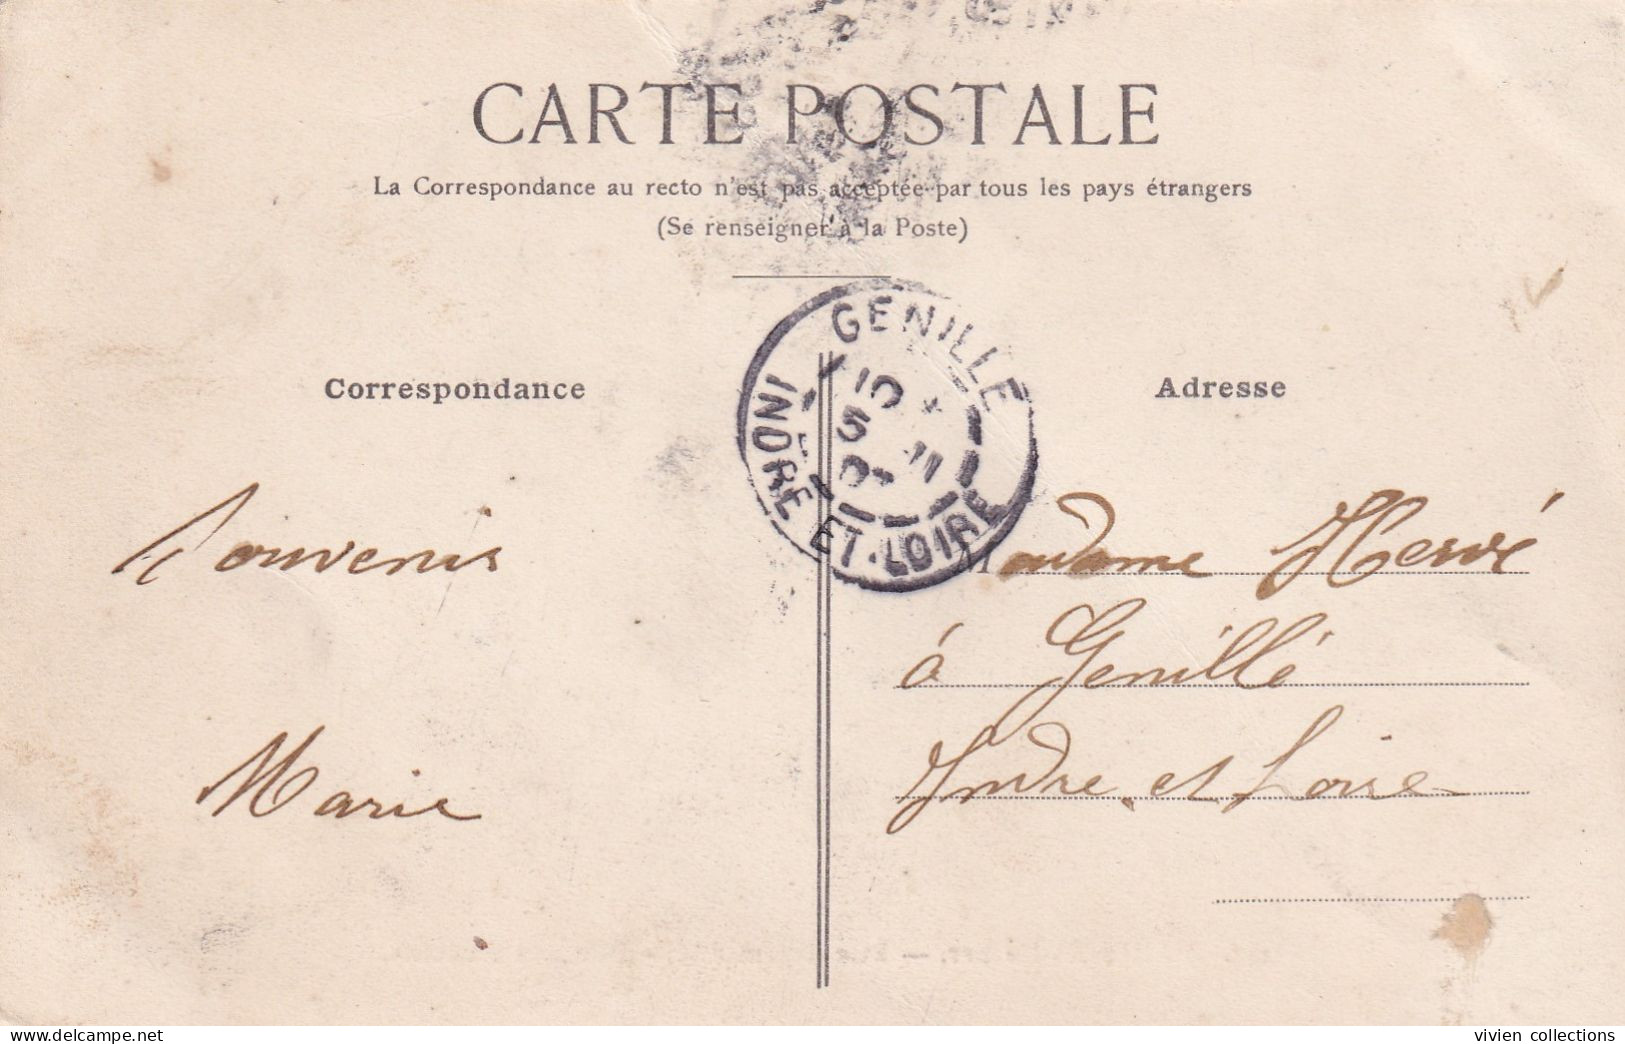 CARTE POSTALE
La Correspondance au recto n'est pas acceptée par tous les pays étrangers
(Se renseigner à la Poste)
GENILLÉ
10
5 - 11
INDRE ET-LOIRE
Correspondance
Adresse
Souvenir
Marie
Madame Hervé
à Genillé
Indre et Loire
vivien collections